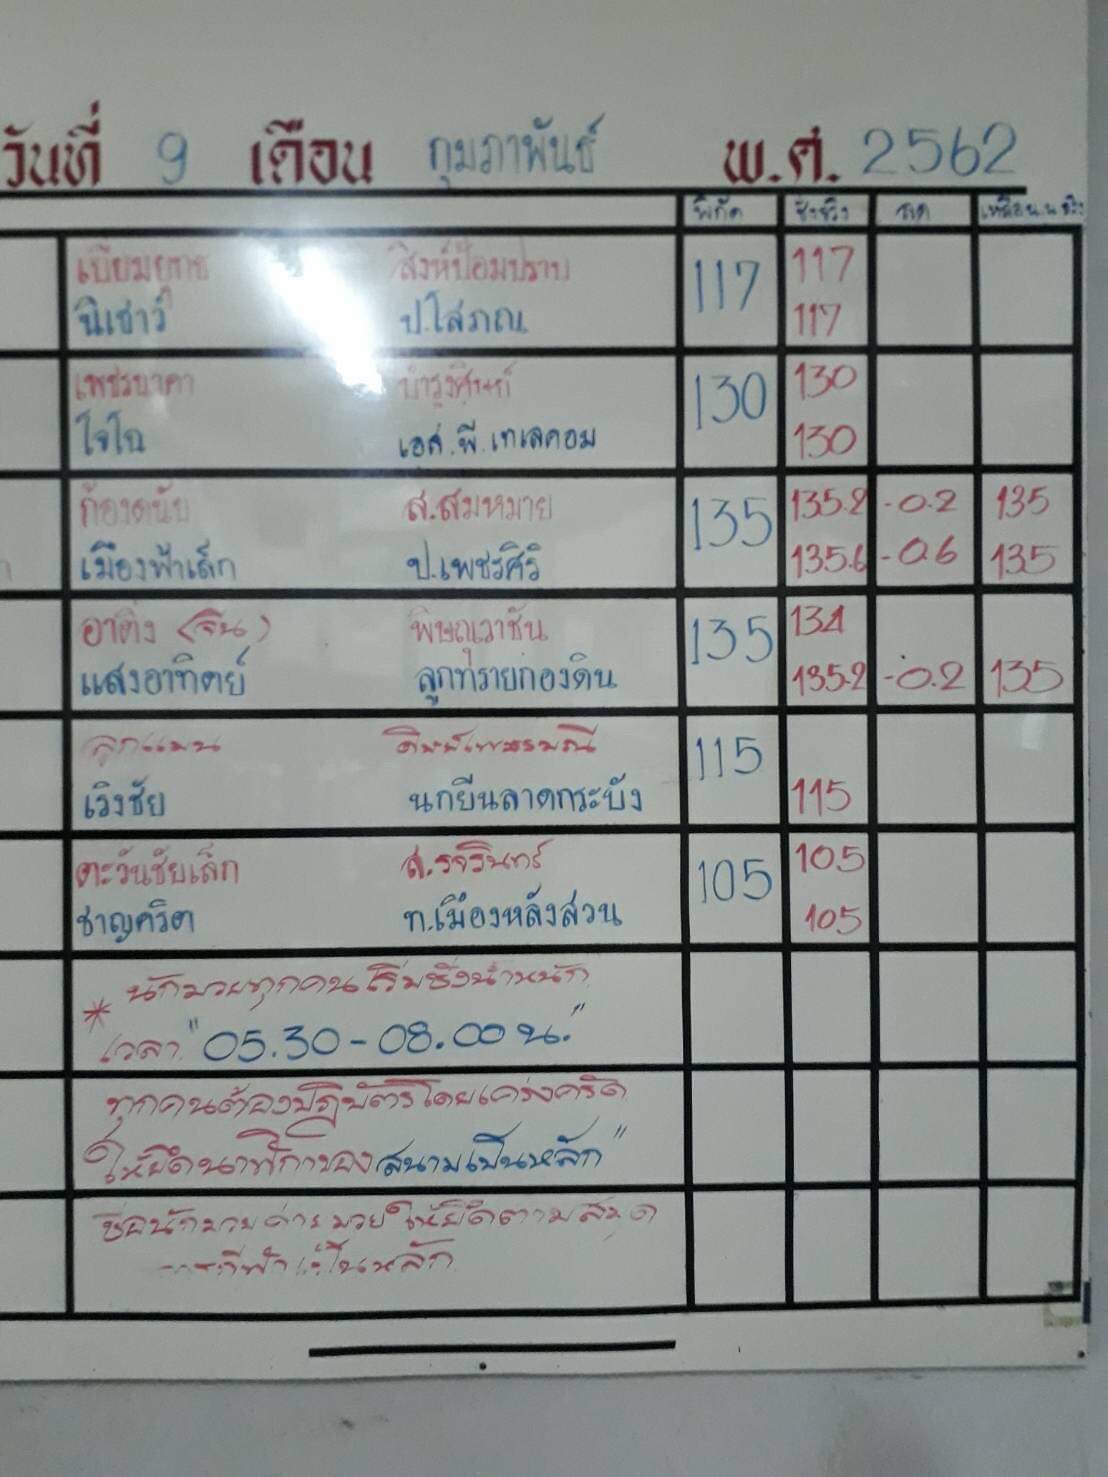 วันที่ 9 เดือน กุมภาพันธ์ พ.ศ. 2562
พิกัด ชั่งจริง ลด
สิงห์ป้อมปราบ 117 117
นิเชาว์ ป.โสภณ 117
เพชรนาคา บำรุงศิษย์ 130 130
โจโฉ เอส.พี.เทเลคอม 130
ก้องดนัย ส.สมหมาย 135 135.2 -0.2 135
เมืองฟ้าเล็ก ป.เพชรศิริ 135.6 -0.6 135
อาติง (จีน) พิษณุเวาชัน 135 134
แสงอาทิตย์ ลูกทรายกองดิน 135.2 -0.2 135
ศิษย์เพชรมณี 115
เริงชัย นกยีนลาดกระบัง 115
ตะวันชัยเล็ก ส.รจรินทร์ 105 105
ชาญคริต ท.เมืองหลังสวน 105
* นักมวยทุกคนเริ่มชั่งน้ำหนัก
เวลา "05.30-08.00 น."
ทุกคนต้องปฏิบัติโดยเคร่งครัด
ให้ยึดนาฬิกาของสนามเป็นหลัก"
ชื่อนักมวยค่ายมวยให้ยึดตามสมุด
กีฬาเป็นหลัก